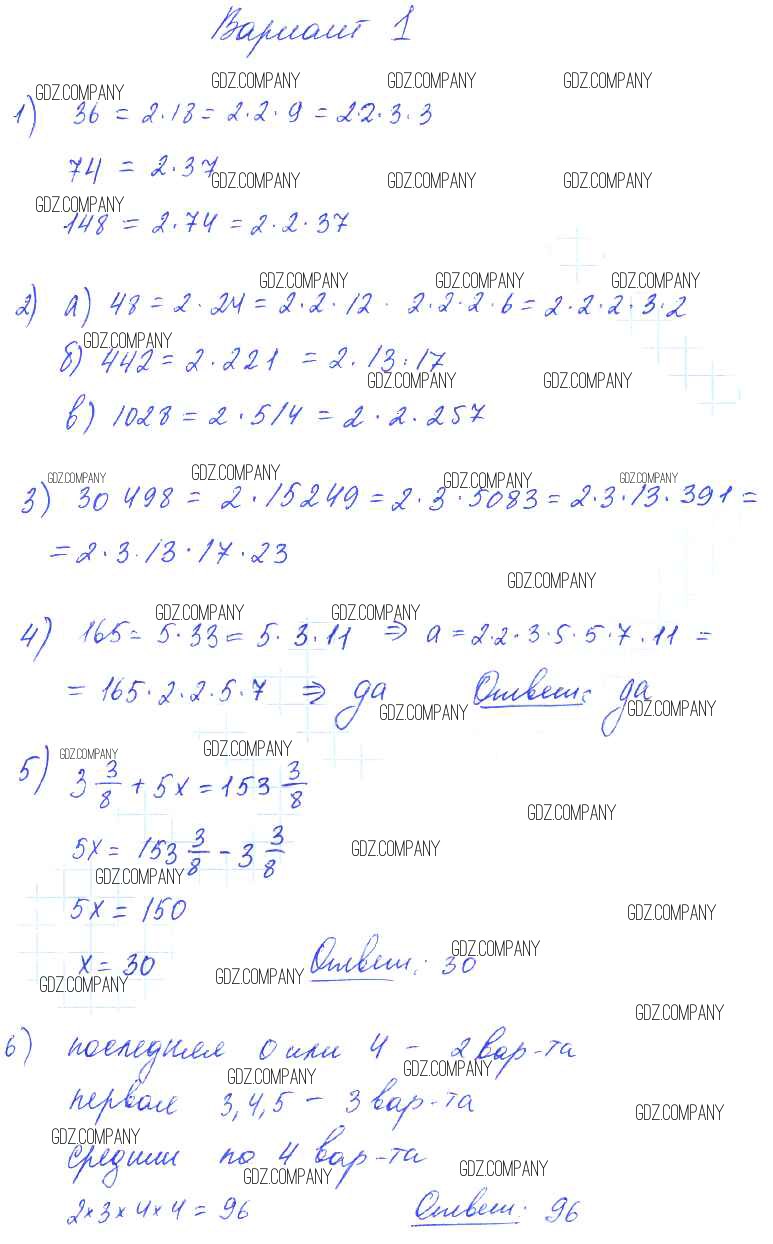 Вариант 1
GDZ.COMPANY GDZ.COMPANY GDZ.COMPANY GDZ.COMPANY
1) 36 = 2·18 = 2·2·9 = 2·2·3·3
74 = 2·37
GDZ.COMPANY GDZ.COMPANY GDZ.COMPANY GDZ.COMPANY
148 = 2·74 = 2·2·37
GDZ.COMPANY GDZ.COMPANY GDZ.COMPANY
2) а) 48 = 2·24 = 2·2·12 · 2·2·2·6 = 2·2·2·3·2
GDZ.COMPANY
б) 442 = 2·221 = 2·13·17
GDZ.COMPANY GDZ.COMPANY
в) 1028 = 2·514 = 2·2·257
GDZ.COMPANY GDZ.COMPANY GDZ.COMPANY GDZ.COMPANY
3) 30 498 = 2·15249 = 2·3·5083 = 2·3·13·391 =
= 2·3·13·17·23
GDZ.COMPANY
GDZ.COMPANY GDZ.COMPANY
4) 165 = 5·33 = 5·3·11 ⇒ а = 2·2·3·5·5·7·11 =
= 165·2·2·5·7 ⇒ да Ответ: да
GDZ.COMPANY GDZ.COMPANY
GDZ.COMPANY GDZ.COMPANY
5) 3 3/8 + 5x = 153 3/8
GDZ.COMPANY
5x = 153 3/8 - 3 3/8
GDZ.COMPANY GDZ.COMPANY
5x = 150
GDZ.COMPANY
x = 30 Ответ: 30
GDZ.COMPANY GDZ.COMPANY GDZ.COMPANY
GDZ.COMPANY
6) последняя 0 или 4 - 2 вар-та
GDZ.COMPANY GDZ.COMPANY
первая 3, 4, 5 - 3 вар-та
GDZ.COMPANY
GDZ.COMPANY
средний по 4 вар-та
GDZ.COMPANY GDZ.COMPANY
2×3×4×4 = 96 Ответ: 96